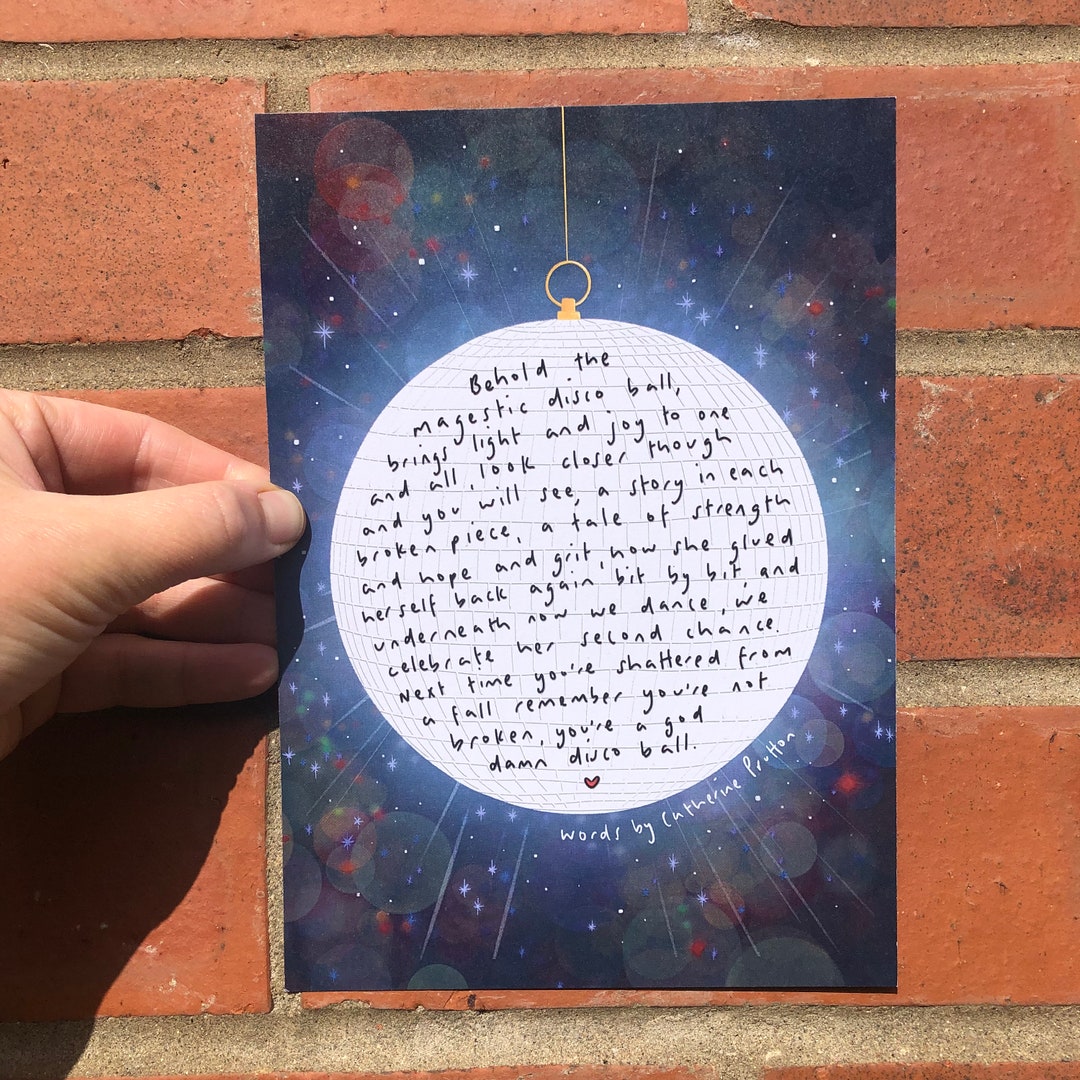 Behold the
magestic disco ball,
brings light and joy to one
and all, look closer though
and you will see, a story in each
broken piece, a tale of strength
and hope and grit, how she glued
herself back again bit by bit, and
underneath now we dance, we
celebrate her second chance.
Next time you're shattered from
a fall remember you're not
broken, you're a god
damn disco ball.
words by Catherine Prutton